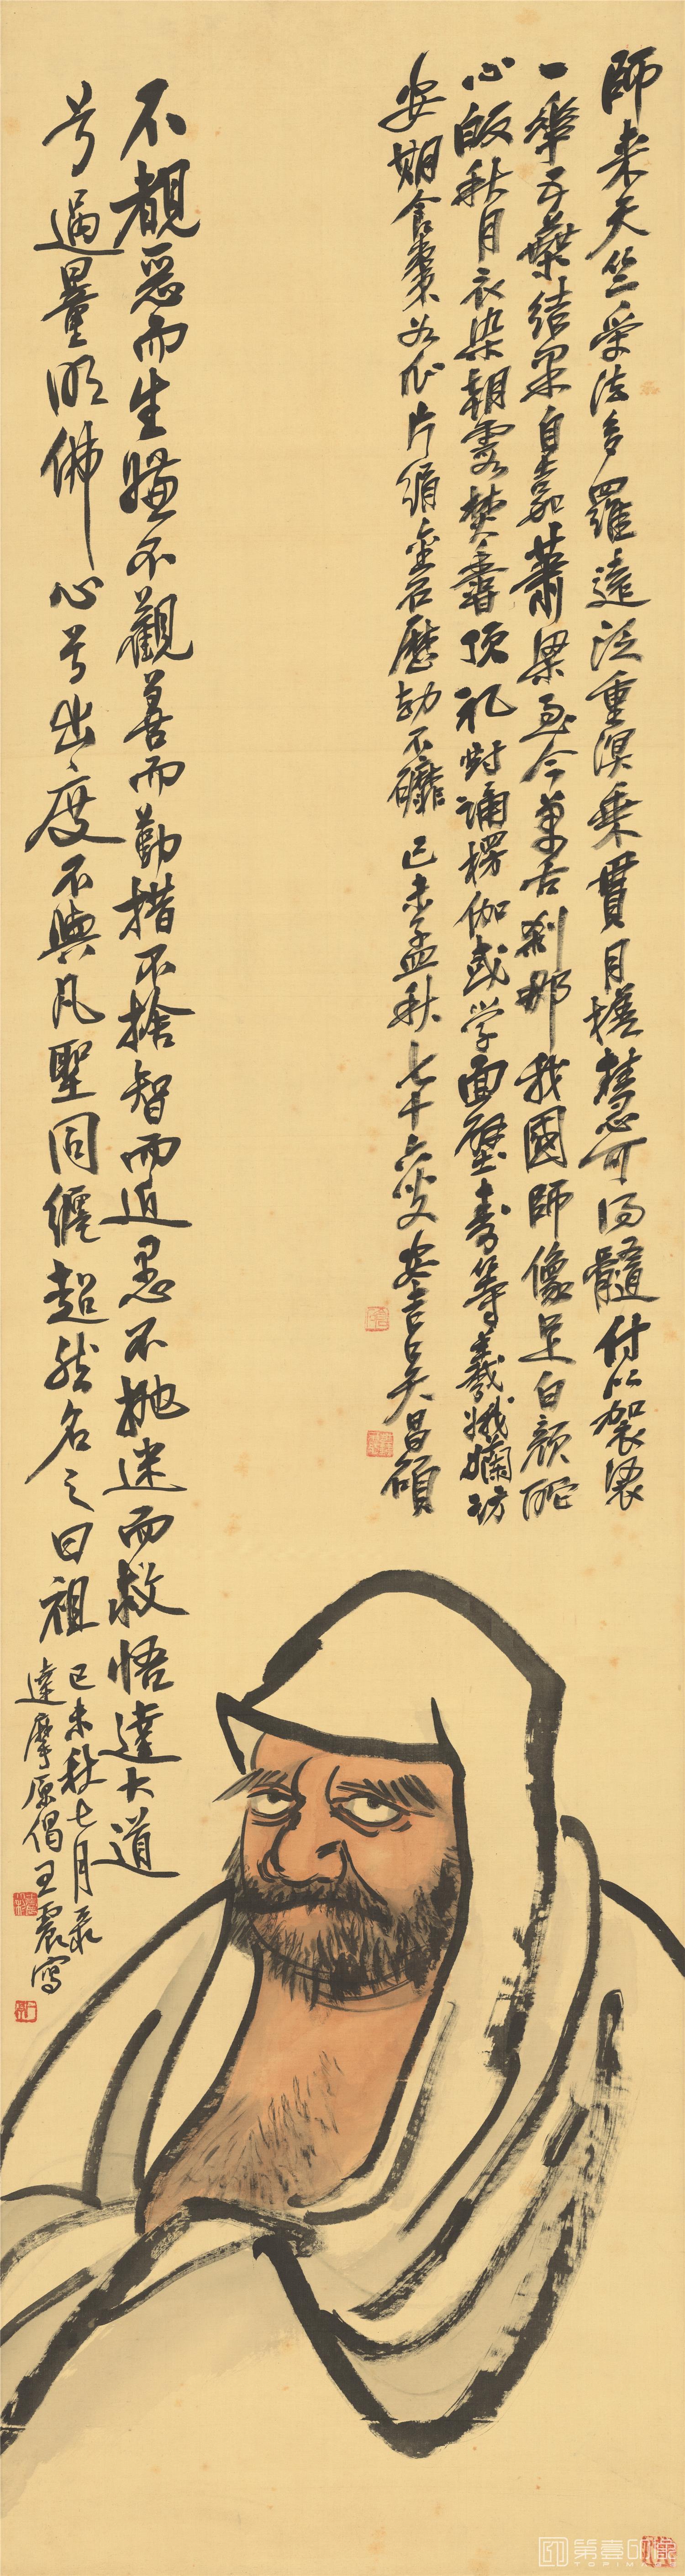 師来天竺受法多羅遠泛重溟乘貫月槎慧可得髓付以袈裟
一華五葉結果自嘉蕭梁至今萬古剎那我國師像足白顏酡
心皈秋月衣染朝霞焚香頂礼時誦楞伽或学面壁壽等羲娥嬾訪
安期食棗如瓜片縑金石歷劫不磨 己未孟秋七十六叟安吉吳昌碩
不覩惡而生嫌不觀善而勤措不捨智而近愚不拋迷而救悟達大道
兮過量明佛心兮出度不與凡聖同纏超然名之曰祖
己未秋七月录
達摩原偈王震寫